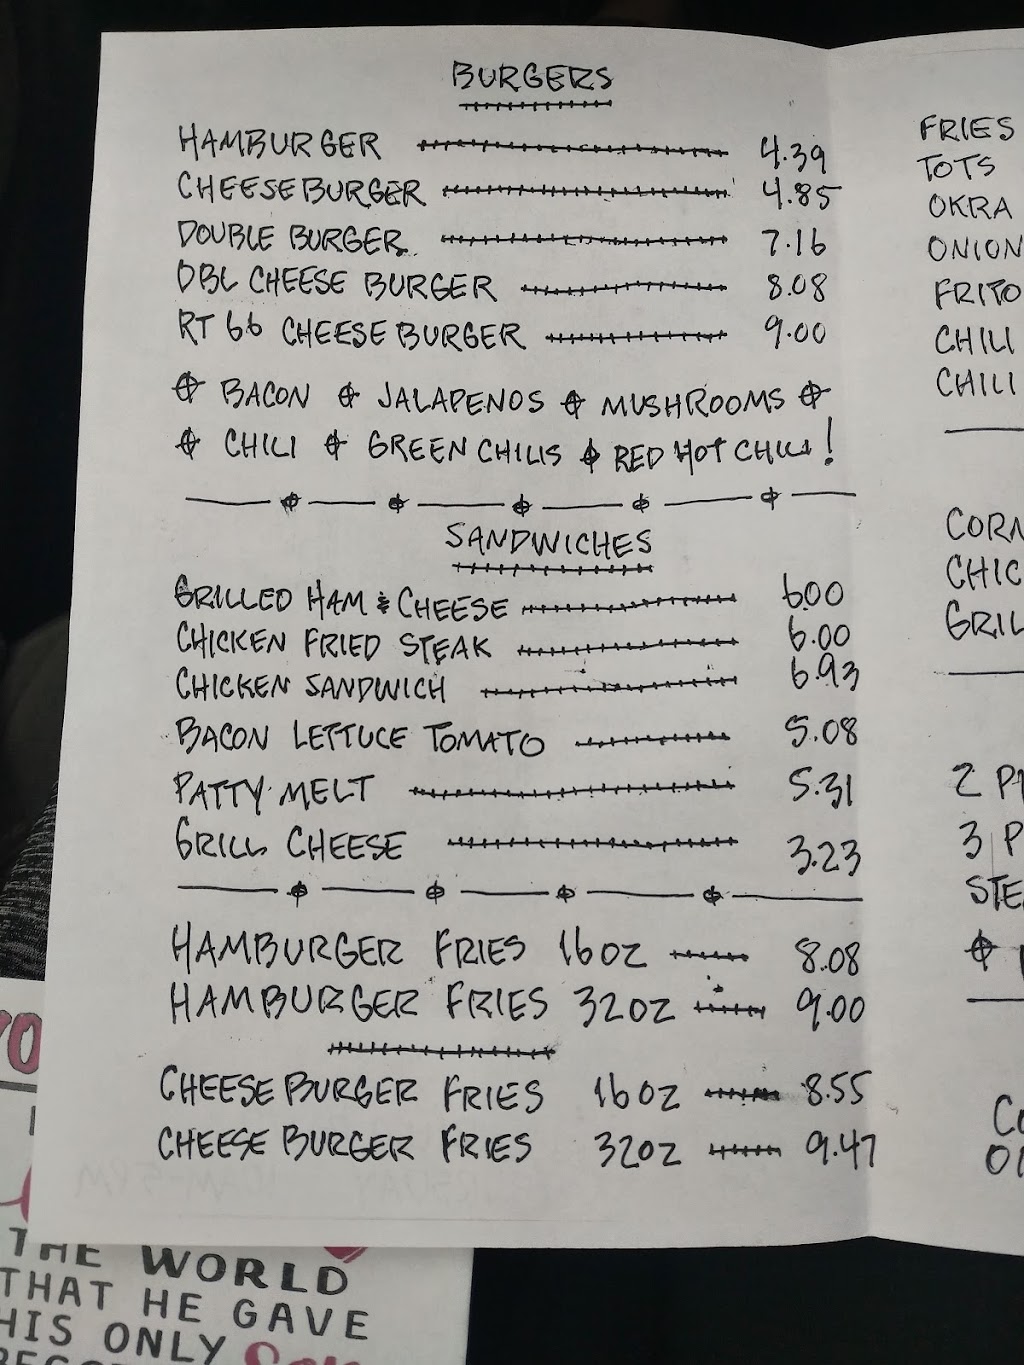 BURGERS
HAMBURGER 4.39
CHEESEBURGER 4.85
DOUBLE BURGER 7.16
DBL CHEESE BURGER 8.08
RT 66 CHEESE BURGER 9.00
BACON JALAPENOS MUSHROOMS
CHILI GREEN CHILIS RED HOT CHILI!
SANDWICHES
GRILLED HAM & CHEESE 6.00
CHICKEN FRIED STEAK 6.00
CHICKEN SANDWICH 6.93
BACON LETTUCE TOMATO 5.08
PATTY MELT 5.31
GRILL CHEESE 3.23
HAMBURGER FRIES 16oz 8.08
HAMBURGER FRIES 32oz 9.00
CHEESE BURGER FRIES 16oz 8.55
CHEESE BURGER FRIES 32oz 9.47
FRIES
TOTS
OKRA
ONION
FRITO
CHILI
CHILI
CORN
CHIC
GRIL
2 P
3 P
STE
THE WORLD
THAT HE GAVE
HIS ONLY